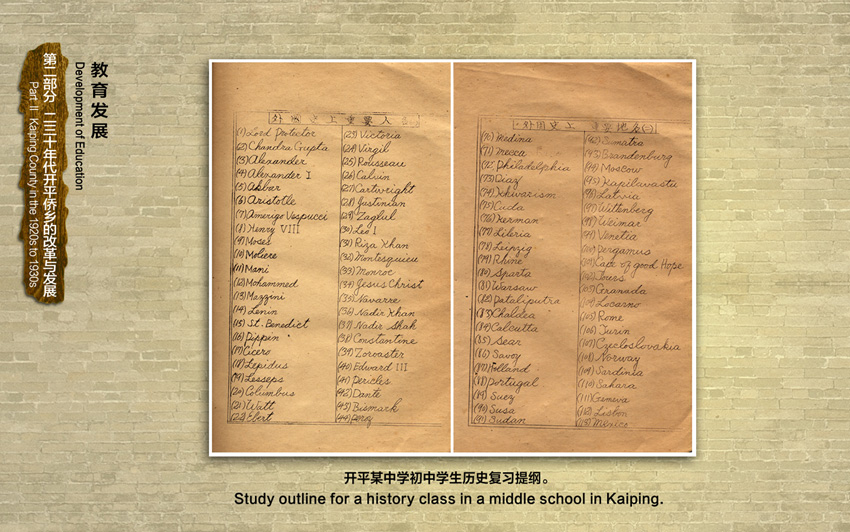 教育发展
Development of Education
第二部分 二三十年代开平侨乡的改革与发展
Part II Kaiping County in the 1920s to 1930s
外国史上重要人
(1) Lord Protector
(2) Chandra Gupta
(3) Alexander
(4) Alexander I
(5) Akbar
(6) Aristotle
(7) Amerigo Vespucci
(8) Henry VIII
(9) Moses
(10) Moliere
(11) Mani
(12) Mohammed
(13) Mazzini
(14) Lenin
(15) St. Benedict
(16) Pippen
(17) Cicero
(18) Lepidus
(19) Lesseps
(20) Columbus
(21) Watt
(22) Ebert
(23) Victoria
(24) Virgil
(25) Rousseau
(26) Calvin
(27) Cartwright
(28) Justinian
(29) Zaglul
(30) Leo I
(31) Riza Khan
(32) Montesquieu
(33) Monroe
(34) Jesus Christ
(35) Navarre
(36) Nadir Khan
(37) Nadir Shah
(38) Constantine
(39) Zoroaster
(40) Edward III
(41) Pericles
(42) Dante
(43) Bismark
(44) Peroz
外国史上 重要地名(二)
(70) Medina
(71) Mecca
(72) Philadelphia
(73) Diaz
(74) Khwarism
(75) Cuda
(76) Kerman
(77) Liberia
(78) Leipzig
(79) Rhine
(80) Sparta
(81) Warsaw
(82) Pataliputra
(83) Chaldea
(84) Calcutta
(85) Sear
(86) Savoy
(87) Holland
(88) Portugal
(89) Suez
(90) Susa
(91) Sudan
(92) Sumatra
(93) Brandenburg
(94) Moscow
(95) Kapilavastu
(96) Latvia
(97) Wittenberg
(98) Weimar
(99) Venetia
(100) Pergamus
(101) Cape of good Hope
(102) Tours
(103) Granada
(104) Locarno
(105) Rome
(106) Turin
(107) Czecloslovakia
(108) Norway
(109) Sardinia
(110) Sahara
(111) Geneva
(112) Lisbon
(113) Mexico
开平某中学初中学生历史复习提纲。
Study outline for a history class in a middle school in Kaiping.